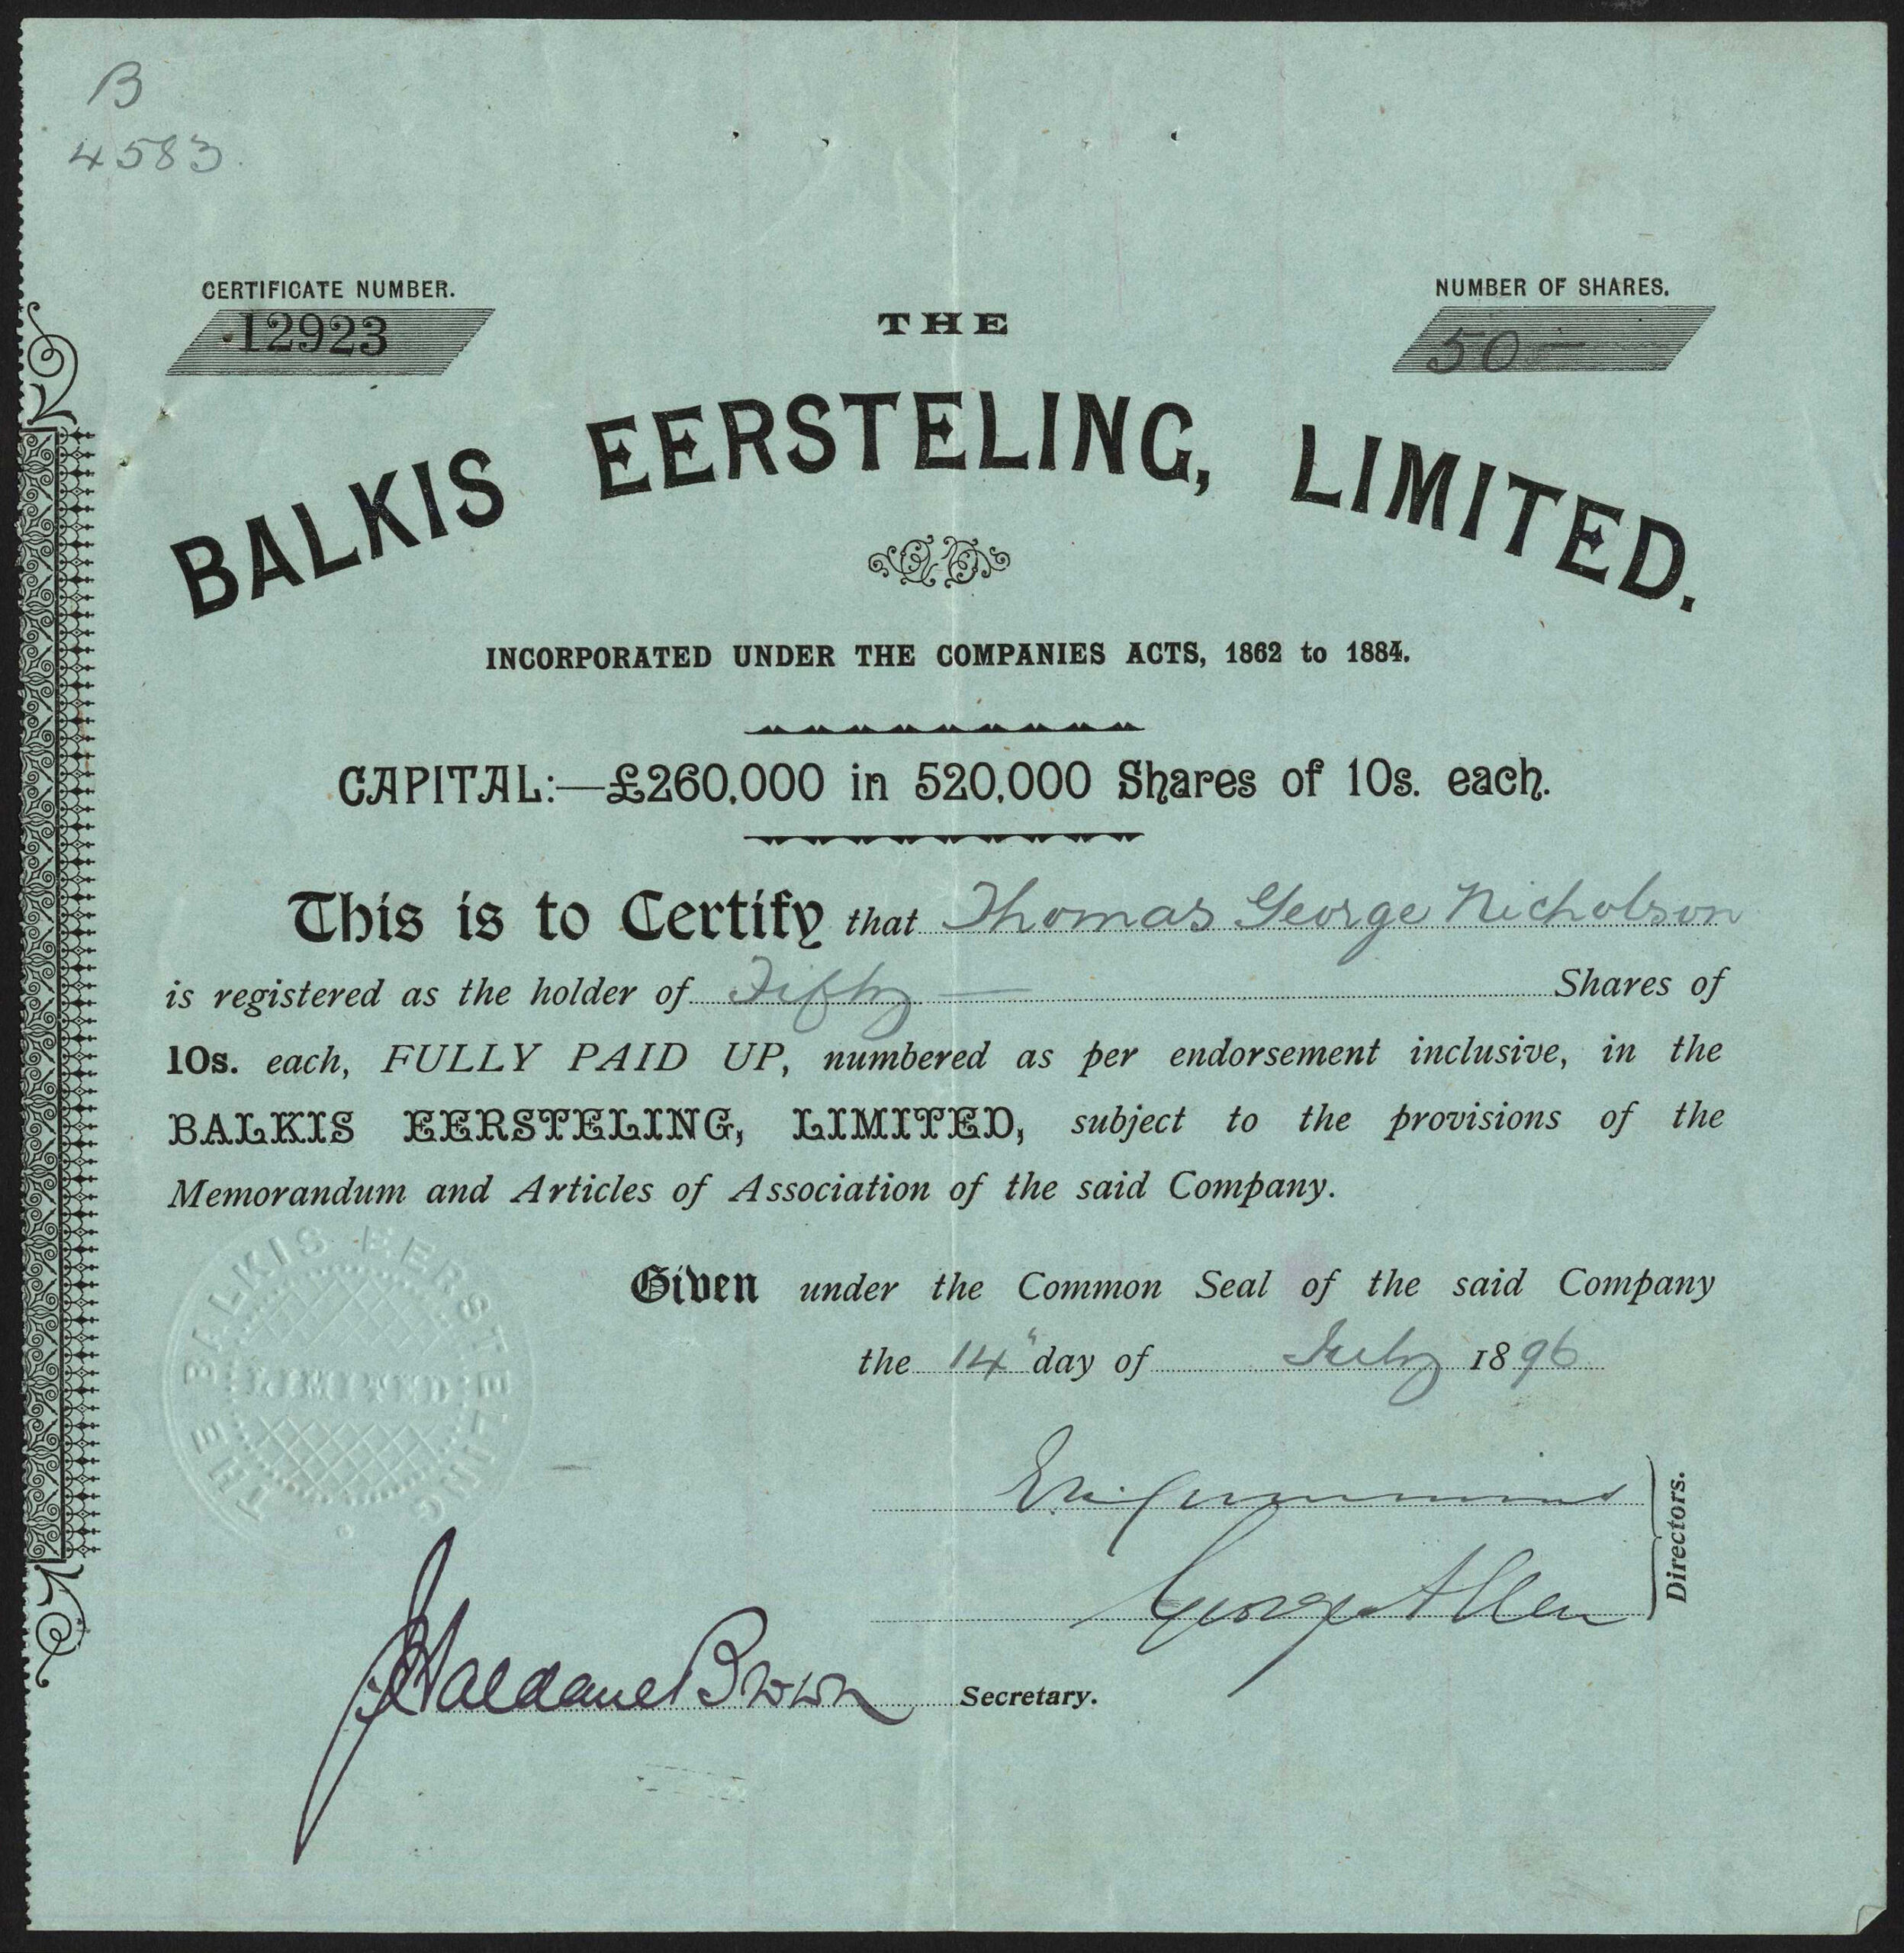 B
4583
CERTIFICATE NUMBER.
12923
NUMBER OF SHARES.
50 —
THE
BALKIS EERSTELING, LIMITED.
INCORPORATED UNDER THE COMPANIES ACTS, 1862 to 1884.
CAPITAL:—£260,000 in 520,000 Shares of 10s. each.
This is to Certify that Thomas George Nicholson
is registered as the holder of Fifty — Shares of
10s. each, FULLY PAID UP, numbered as per endorsement inclusive, in the
BALKIS EERSTELING, LIMITED, subject to the provisions of the
Memorandum and Articles of Association of the said Company.
THE BALKIS EERSTELING
LIMITED
Given under the Common Seal of the said Company
the 14" day of July 1896
George Allen
Directors.
J Haldane Brown Secretary.